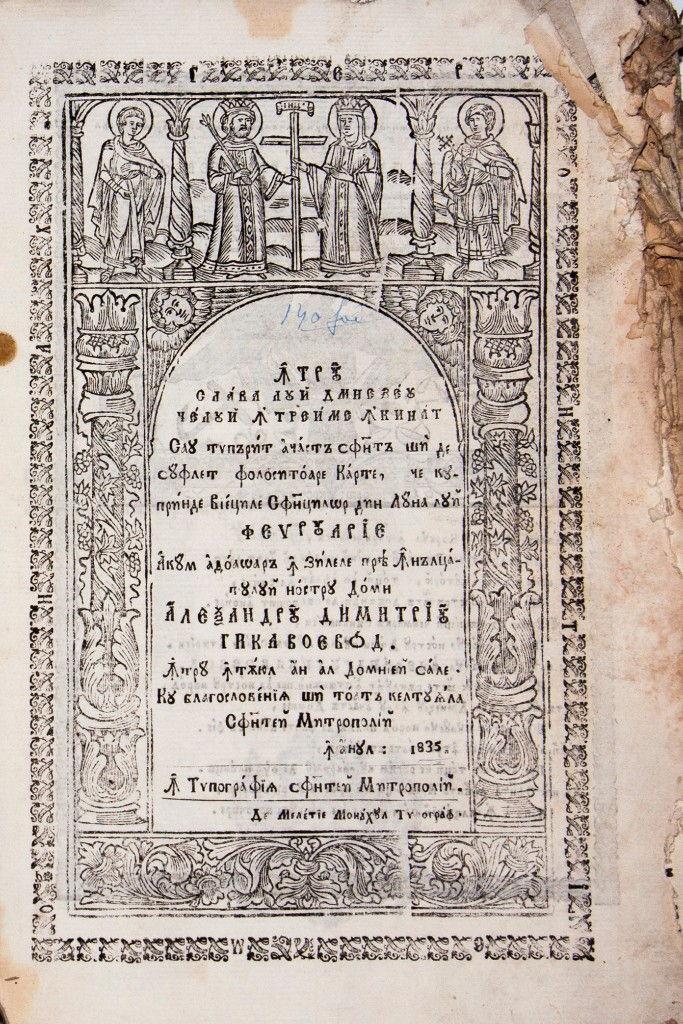 140 foi
ꙞТРꙊ
СЛАВА ЛУЙ ДМНЕЗЕУ
ЧЕЛУЙ Ꙟ ТРЕИМЕ ꙞКИНАТ
Сау типърит ачастъ сфⷩ҇тъ ши де
суфлет фолоситоаре Карте, че ку-
принде Вїецѝле Сфинцилѡр дин Луна луй
ФЕVРꙊАРІЕ
Акум адоаѡаръ ꙟ Зилеле прѣ Ꙟнълца-
тулуй ностру Домн
АЛЕѮАНДРꙊ ДИМИТРІꙊ
ГИКА ВОЕВОД.
Ꙟтру ꙟтѫюл ан ал Домнїей сале.
Ку благословенїѧ ши тоатъ келтуѧла
Сфинтей Митрополїй
ꙟ анул: 1835.
Ꙟ Типографїѧ сфинтей Митрополїй.
Де Мелетїе Монахул Типограф.